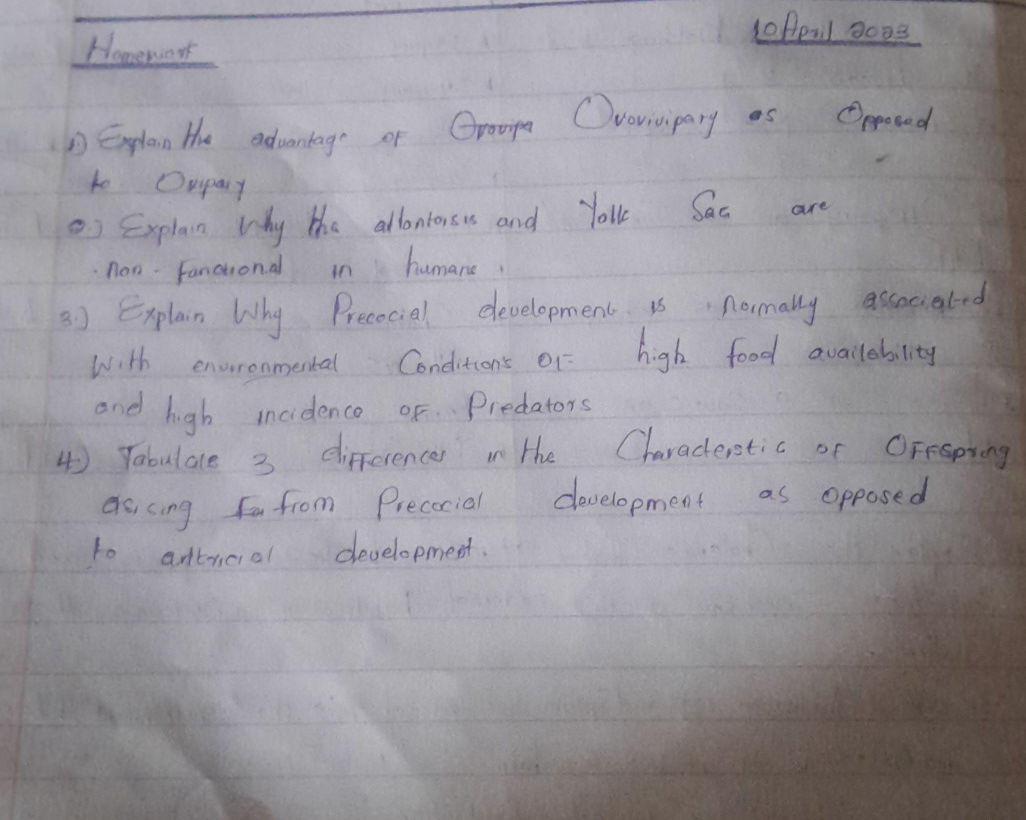 10 April 2023
Homework
1.) Explain the advantage of Ovovivipary as Opposed
to Ovipary
2.) Explain Why the allantoisis and Yolk Sac are
non-functional in humans.
3.) Explain Why Precocial development is normally associated
With environmental Conditions of high food availability
and high incidence of Predators
4.) Tabulate 3 differences in the Characterstic of Offspring
asicing from Precocial development as opposed
to antricial development.